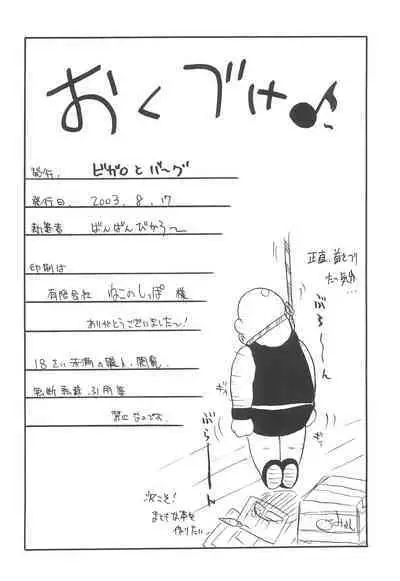 おくづけ♪
発行. ビガロとバーグ
発行日. 2003. 8. 17
執筆者. ばんばんびがろ〜
印刷は
有限会社 ねこのしっぽ 様
ありがとうございました〜!
18さい未満の購入、閲覧
無断転載、引用等
禁止なのでよ.
正直、首をつり
たい気分…
ぶら〜ん
ギュッ
ギュッ
ぶら〜ん
次こそ!
まともな本を
作りたい